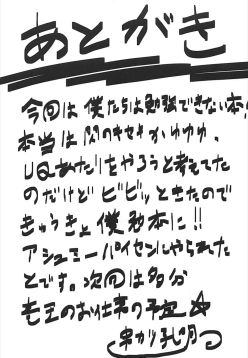 あとがき
今回は僕たちは勉強できない本!
本当は閃のキセキかゆゆゆ、
UQあたりをやろうと考えてた
のだけどビビッときたので
きゅうきょ僕勉本に!!
アシュミーパイセンにやられた
とです。次回は多分
老王のお仕事の予定☆
串かつ孔明